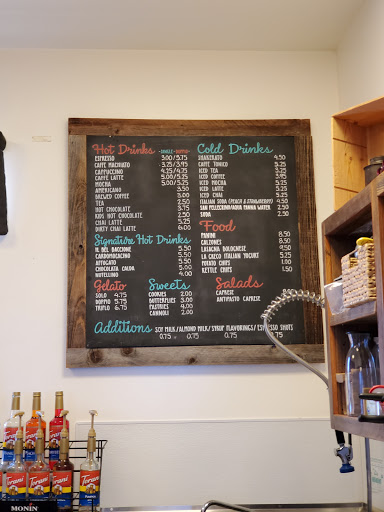 Hot Drinks -SINGLE-DOPPIO-
ESPRESSO 3.00/3.75
CAFFE MACHIATO 3.25/3.95
CAPPUCCINO 4.25/4.75
CAFFE LATTE 5.00/5.25
MOCHA 5.00/5.25
AMERICANO 3.50
BREWED COFFEE 3.00
TEA 2.50
HOT CHOCOLATE 3.75
KIDS HOT CHOCOLATE 2.50
CHAI LATTE 5.25
DIRTY CHAI LATTE 6.00
Signature Hot Drinks
IL DEL BACCHINE 5.50
CARDOMOCACCINO 5.50
AFFOGATO 5.50
CHOCOLATA CALDA 5.00
NUTELLINO 4.00
Gelato
SOLO 4.75
DOPPIO 5.75
TRIPLO 6.75
Sweets
COOKIES 2.00
BUTTERFLIES 3.00
PASTRIES 4.00
CANNOLI 2.00
Cold Drinks
SHAKERATO 4.50
CAFFE TONICO 5.25
ICED TEA 3.25
ICED COFFEE
ICED MOCHA
ICED LATTE
ICED CHAI
ITALIAN SODA
SAN PELLEGRINO/AQUA PANNA WATER
SODA 2.50
Food
PANINI
CALZONES
LASAGNA BOLOGNESE
LA CUECO ITALIAN YOGURT
POTATO CHIPS
KETTLE CHIPS 1.50
Salads
CAPRESE
ANTIPASTO CAPRESE
Additions SOY MILK/ALMOND MILK/SYRUP FLAVORINGS/ESPRESSO SHOTS
0.75 0.75 0.75
Torani
Torani
Torani
Torani
MONIN